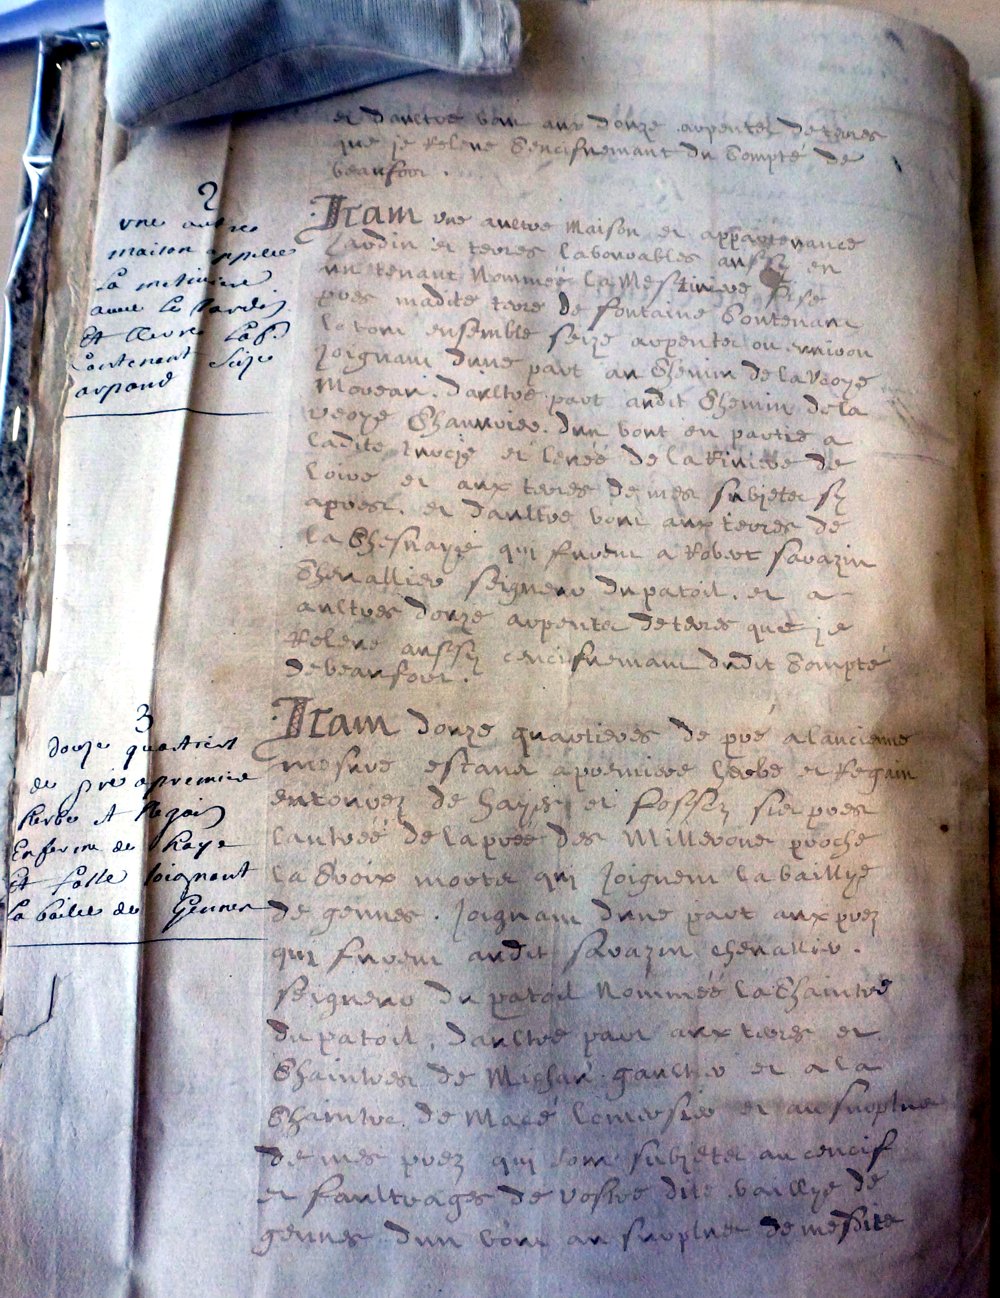 et daultre bout aux donze arpentz de terres
que je Releve Sencifvemant du Compté de
beaufort.
2
une aultre
maison appellee
la metiviere
avec le Jardin
Et terre Lab.
Contenant Seize
arpand
Itam une aultre Maison et appartenance
Jardin et terres labourables aussy en
un tenant Nommée la Mestiviere sise
pres madite terre de fontaine Contenant
le tout ensemble seize arpentz ou environ
Joignant dune part au Chemin de la
Moreau, daultre part audit Chemin de la
dun bout en partie a
ladite et levée de la Riviere de
loire et aux terres de mes subjetz cy
apres, et daultre bout aux terres de
la Chesnaye qui furent a Robert Savazin
Chevallier seigneur du patoil, et a
aultres donze arpentz de terres que je
Releve aussy cencifvemant dudit Compté
de beaufort.
3
douze quartiers
de pré a premiere
herbe Et Regain
Enferme de haye
Et fosse Joignant
la baille de Gennes
Itam donze quartieres de pré a lancienne
mesure estant a premiere herbe et Regain
entourez de hayes et fossez sis pres
lantrée de la pree des Millerons proche
la Croix morte qui Joignent la baillye
de gennes. Joignant dune part aux prez
qui furent audit Savazin chevallier.
seigneur du patoil Nommée la Chaintre
du patoil, daultre part aux terres et
Chaintres de Michau gaultier et a la
Chaintre de Macé et au surplus
de mes prez qui sont subjetz au cencif
et faultrages de vostre dite baillye de
gennes dun bout au surplus de mesdite